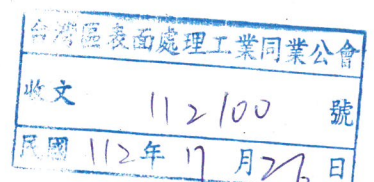 台灣區表面處理工業同業公會
收文 112100 號
民國 112年 月26日